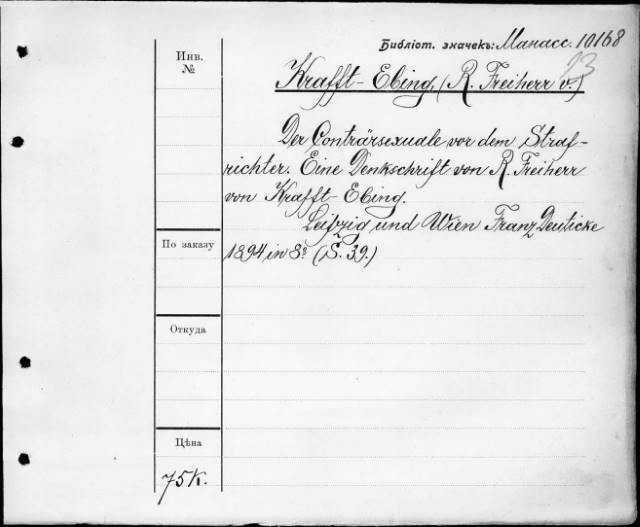 Библіот. значекъ: Манасс. 10168
Инв.
№
23
Krafft-Ebing, (R. Freiherr v.)
Der Conträrsexuale vor dem Straf-
richter. Eine Denkschrift von R. Freiherr
von Krafft-Ebing.
Leipzig und Wien Franz Deuticke
По заказу
1894 in 8º (S. 39.)
Откуда
Цѣна
75 к.